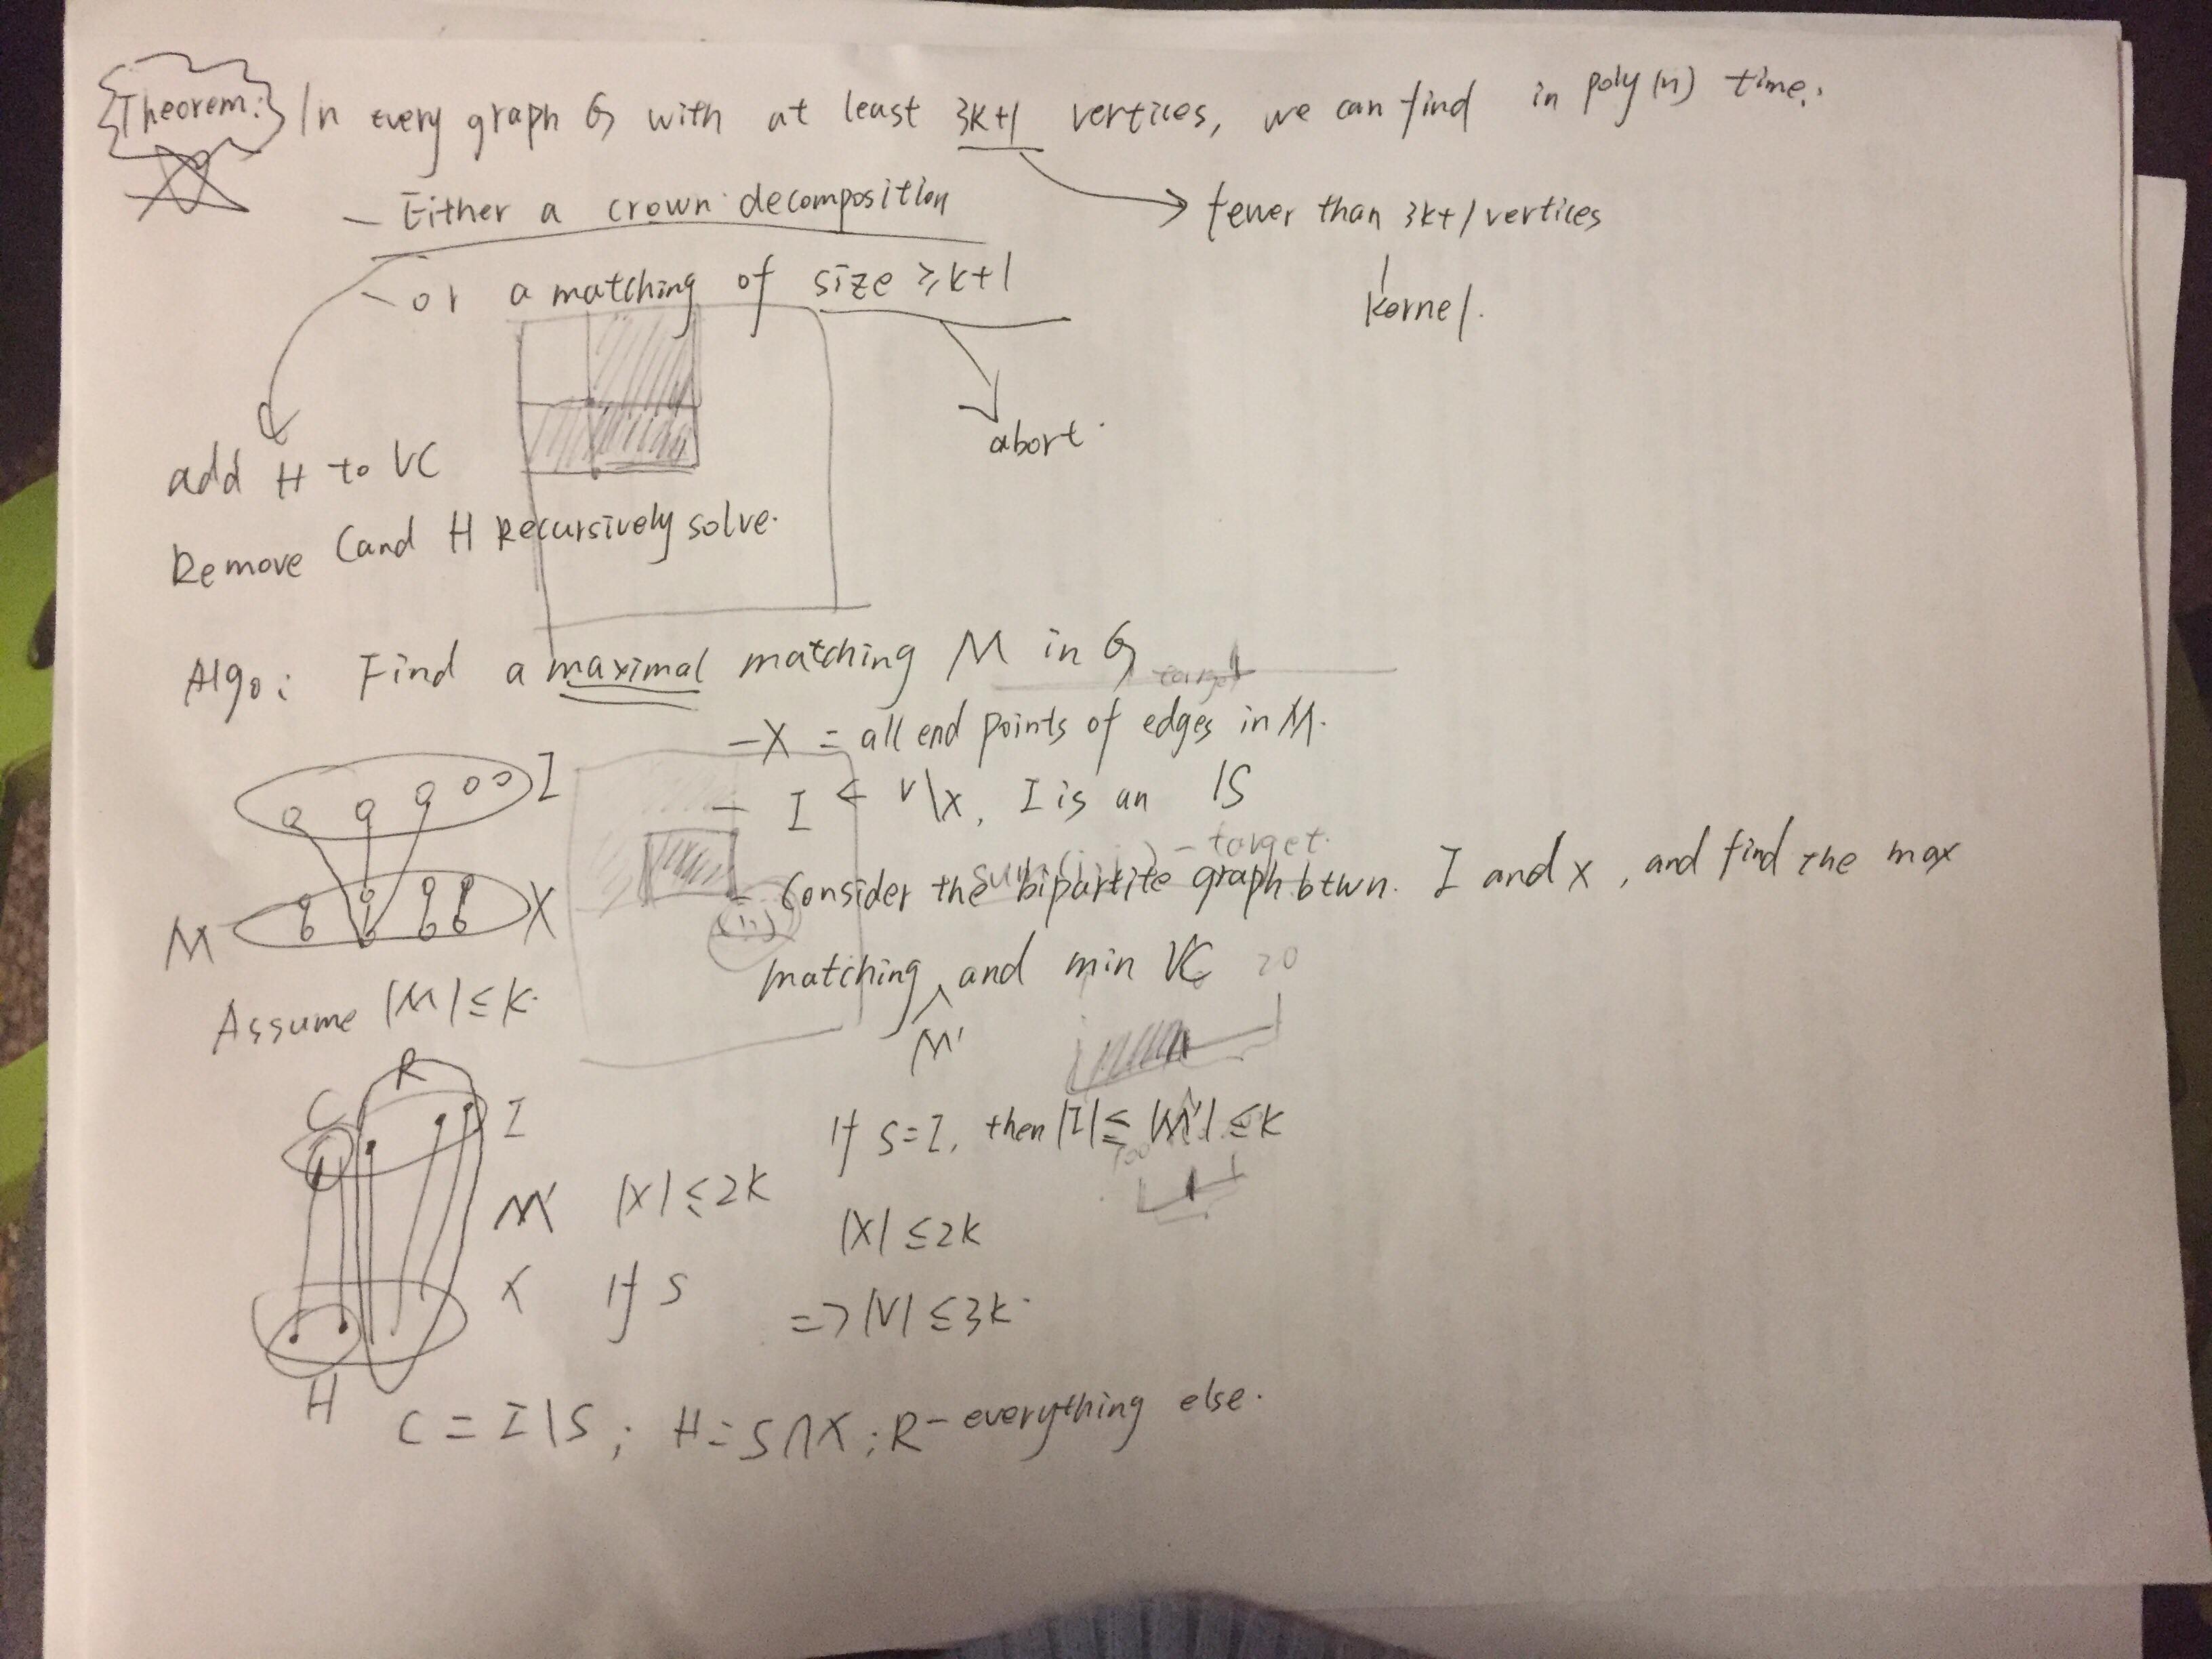 Theorem: In every graph G with at least 3k+1 vertices, we can find in poly(n) time:
- Either a crown decomposition
→ fewer than 3k+1 vertices
- or a matching of size ≥ k+1
kernel.
abort.
add H to VC
Remove C and H Recursively solve.
Algo: Find a maximal matching M in G
target
- X = all end points of edges in M.
I
- I ← V\X, I is an IS
- target.
M X
- Consider the bipartite graph btwn. I and X, and find the max
matching and min VC
M'
20
Assume |M| ≤ k.
R
C I
If S=I, then |I| ≤ |M'| ≤ k
M' |X| ≤ 2k
|X| ≤ 2k
X If S
=> |V| ≤ 3k.
H
C = I\S; H = S∩X; R - everything else.